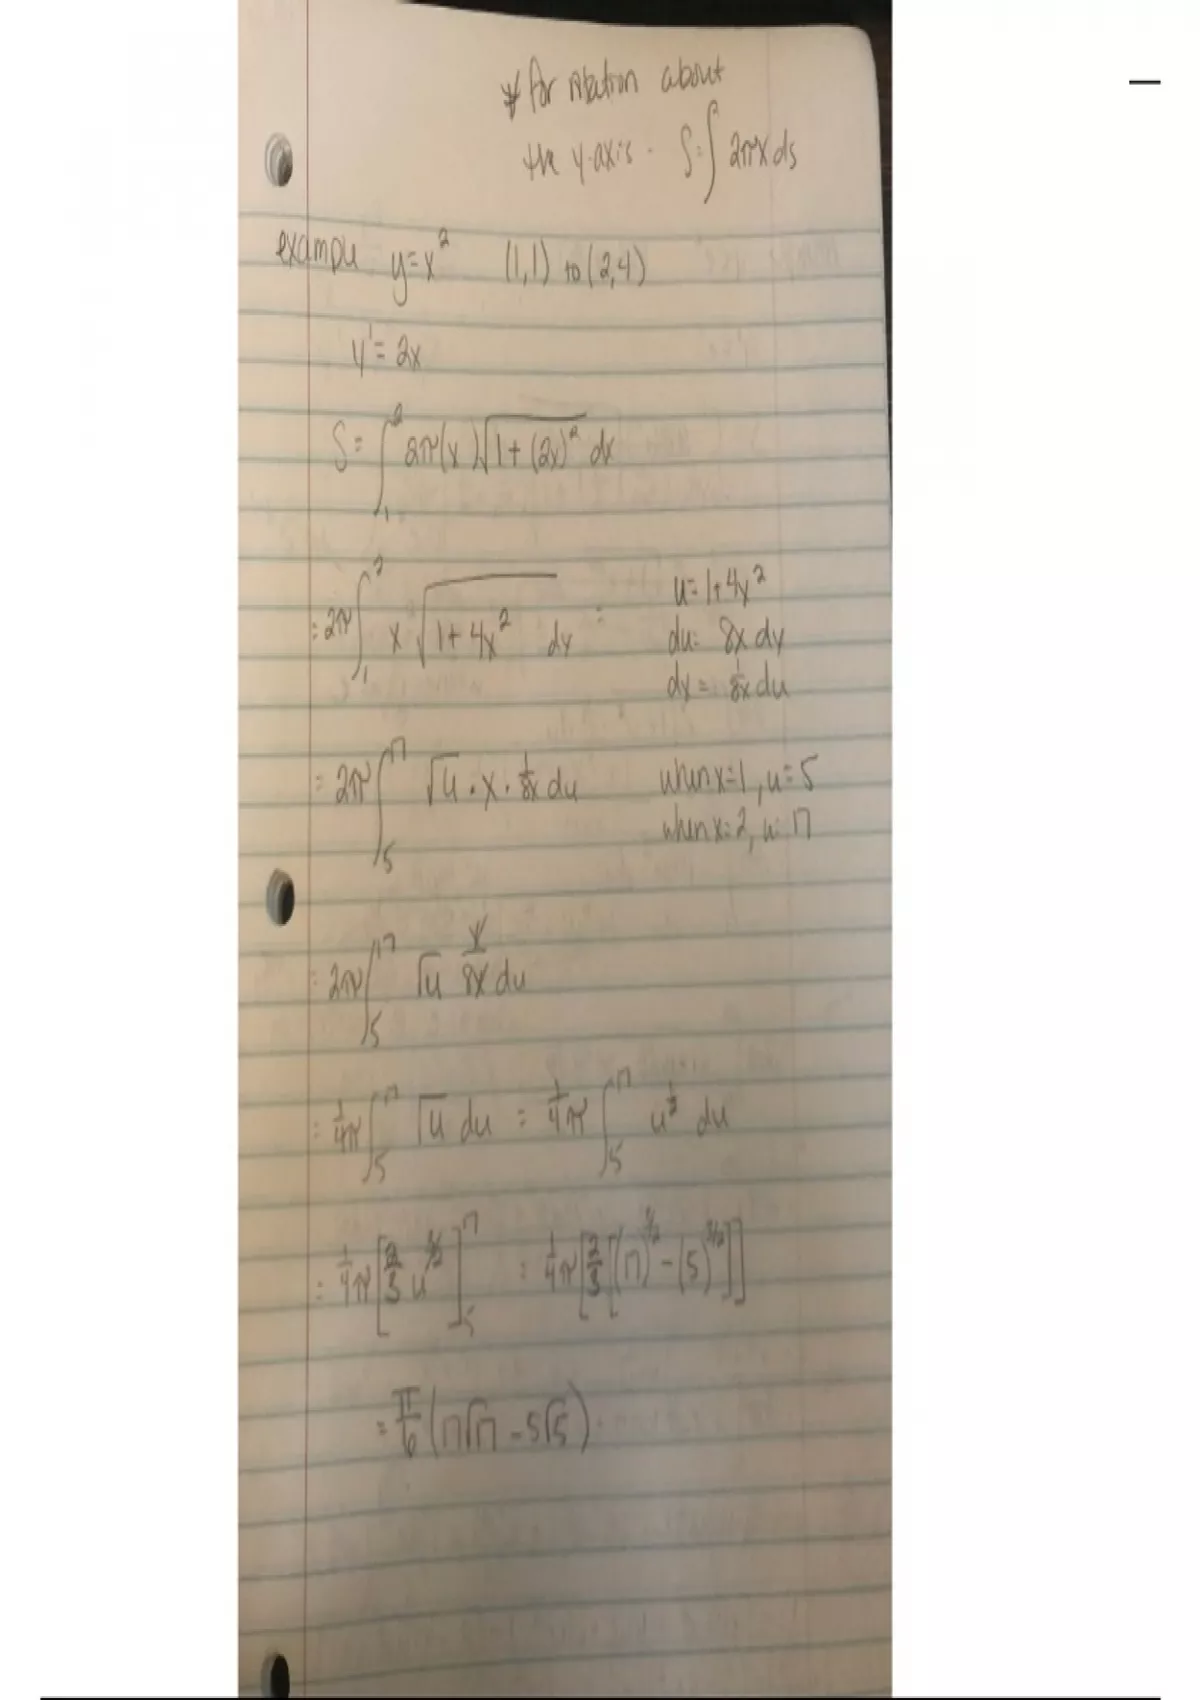 * for rotation about
the y-axis. S = ∫² 2πx ds
example y = x² (1,1) to (2,4)
y' = 2x
S = ∫₁² 2π(x)√(1 + (2x)²) dx
= 2π ∫₁² x √(1 + 4x²) dx = u = 1 + 4x²
du = 8x dx
dx = 1/8x du
= 2π ∫₅¹⁷ √u · x · 1/8x du when x = 1, u = 5
when x = 2, u = 17
= 2π ∫₅¹⁷ √u x/8x du
= 1/4 π ∫₅¹⁷ √u du = 1/4 π ∫₅¹⁷ u^1/2 du
= 1/4 π [2/3 u^3/2]₅¹⁷ = 1/4 π [2/3 [(17)^3/2 - (5)^3/2]]
= π/6 (17√17 - 5√5).